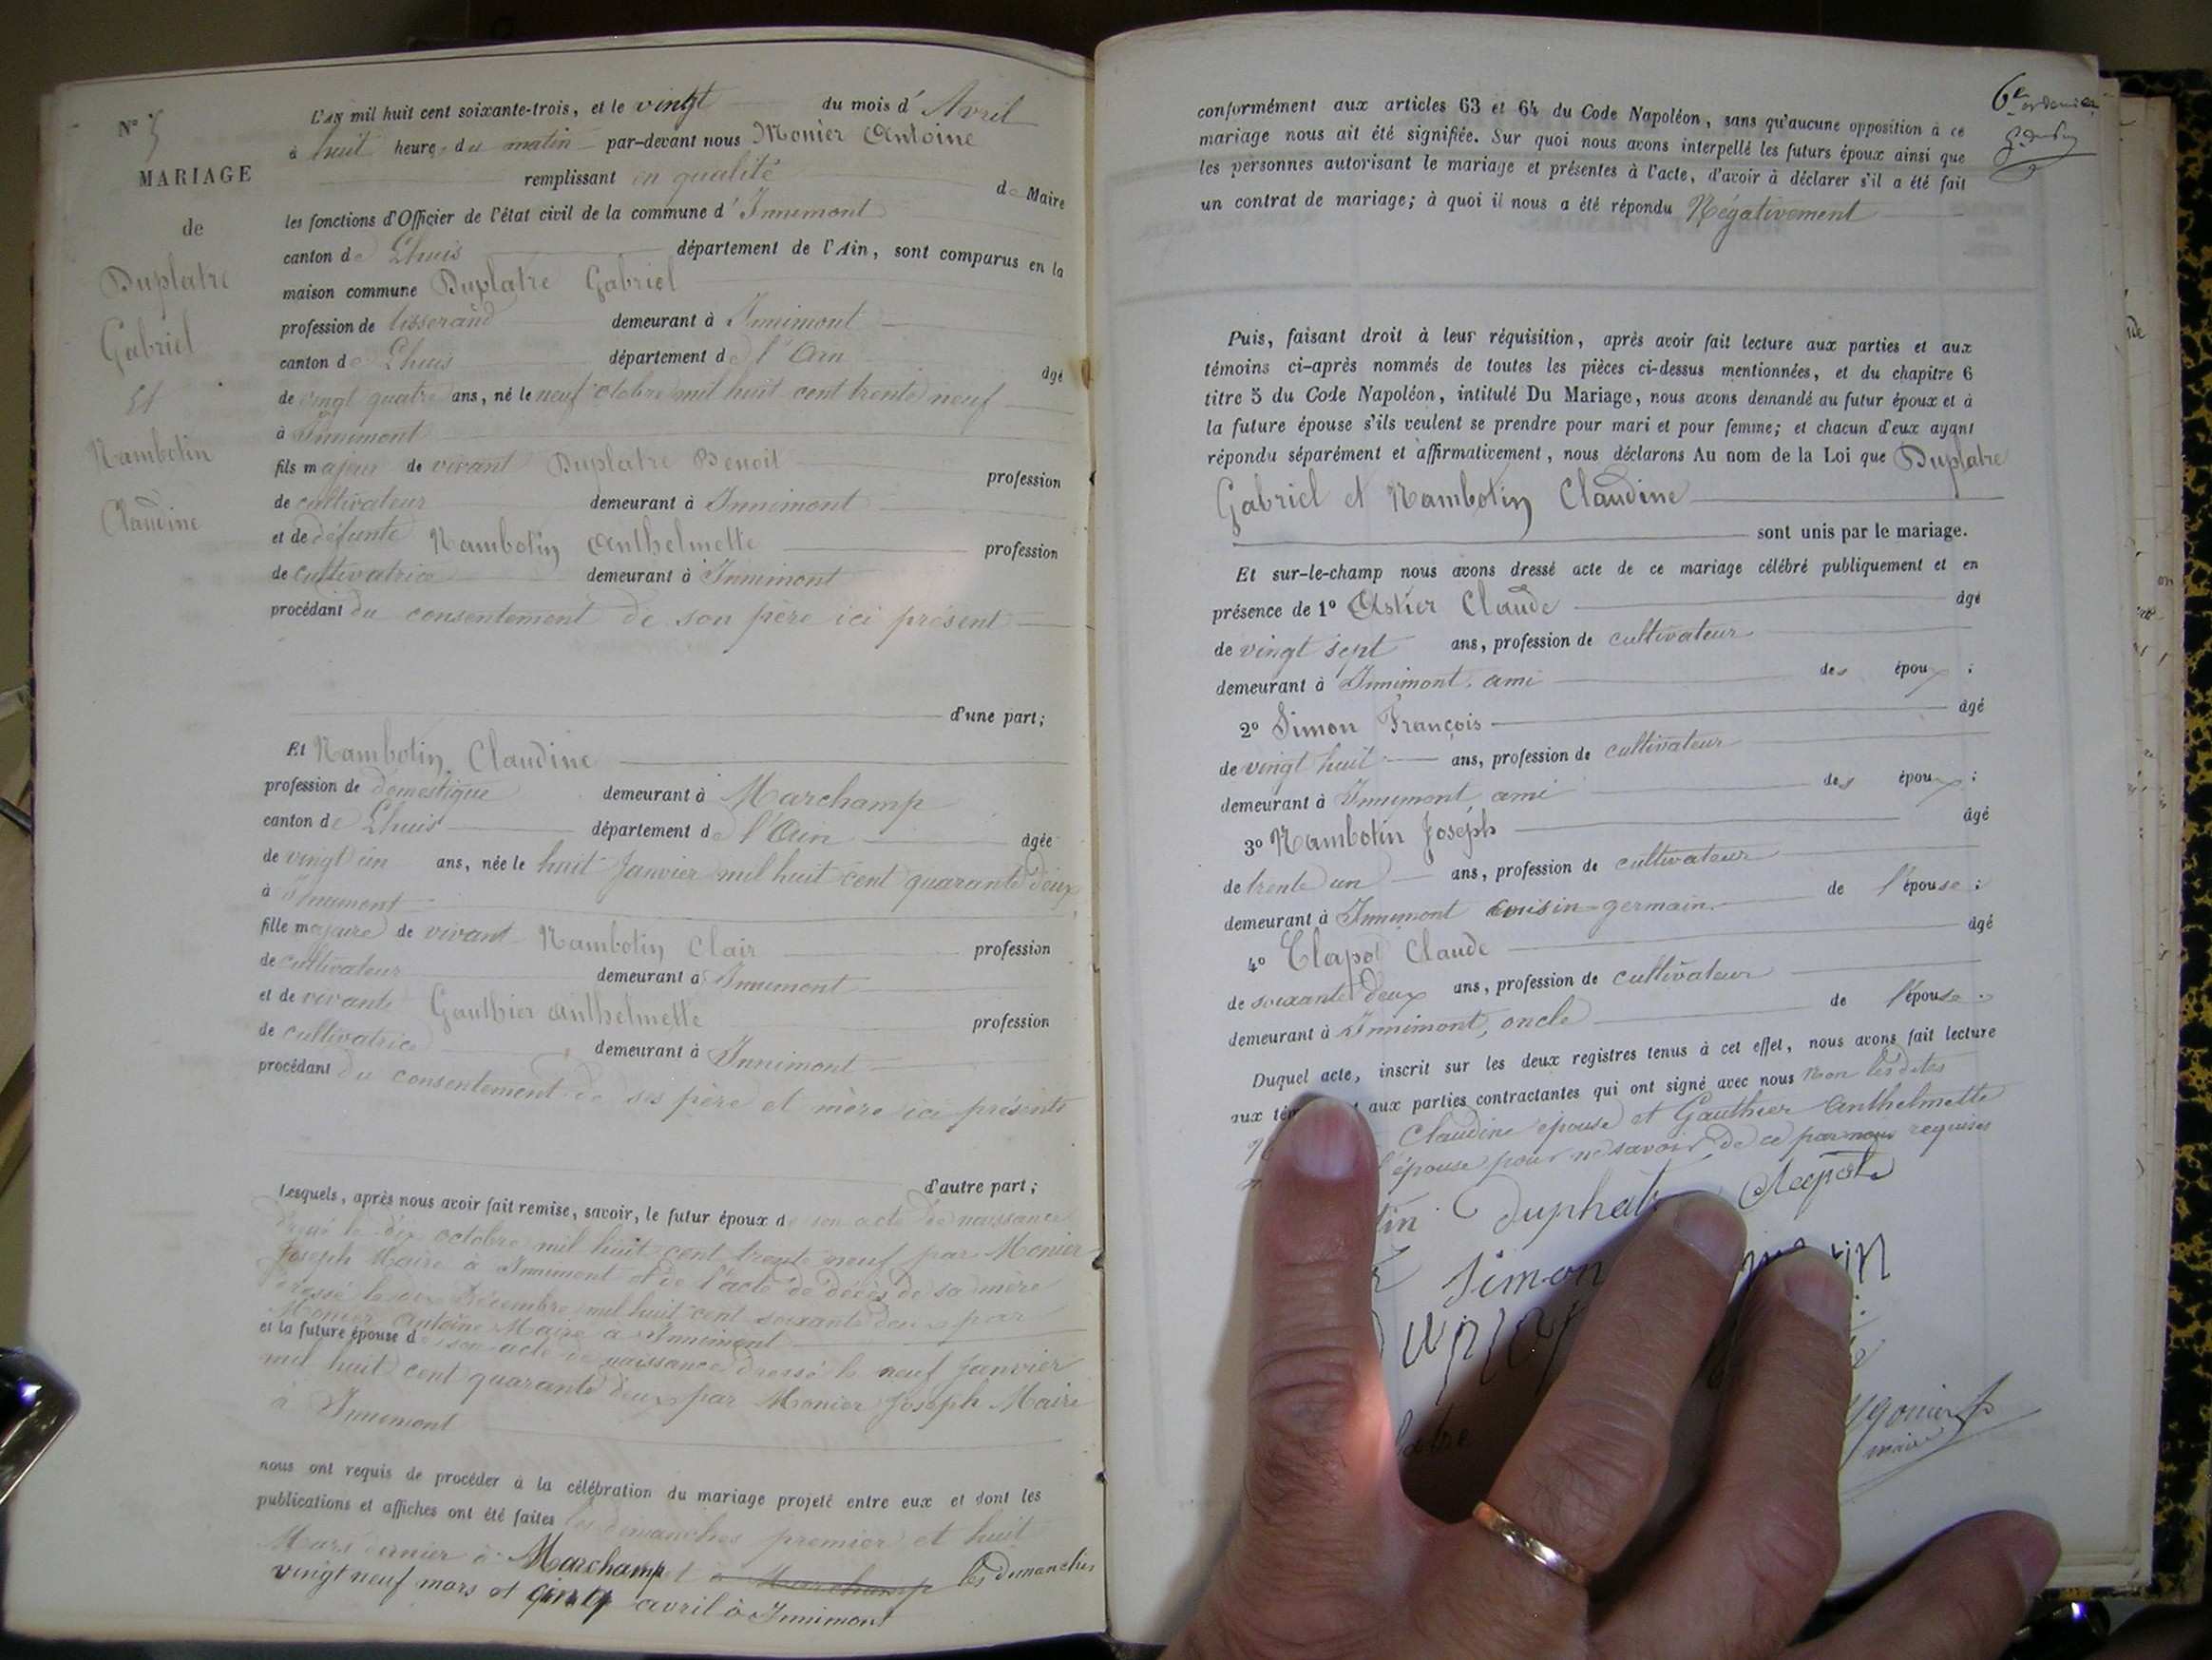 N° 5
MARIAGE
de
Duplatre
Gabriel
Et
Nambotin
Claudine
L'an mil huit cent soixante-trois, et le vingt du mois d'Avril
à huit heure du matin par-devant nous Monier Antoine
remplissant en qualité de Maire
les fonctions d'Officier de l'état civil de la commune d'Innimont
canton de Lhuis département de l'Ain, sont comparus en la
maison commune Duplatre Gabriel
profession de tisserand demeurant à Innimont
canton de Lhuis département de l'Ain âgé
de vingt quatre ans, né le neuf octobre mil huit cent trente neuf
à Innimont
fils majeur de vivant Duplatre Benoit profession
de cultivateur demeurant à Innimont
et de défunte Nambotin Anthelmette profession
de cultivatrice demeurant à Innimont
procédant du consentement de son père ici présent
d'une part;
Et Nambotin Claudine
profession de domestique demeurant à Marchamp
canton de Lhuis département de l'Ain âgée
de vingt un ans, née le huit Janvier mil huit cent quarante deux
à Innimont
fille majeure de vivant Nambotin Clair profession
de cultivateur demeurant à Innimont
et de vivante Gauthier Anthelmette profession
de cultivatrice demeurant à Innimont
procédant du consentement de ses père et mère ici présents
d'autre part;
Lesquels, après nous avoir fait remise, savoir, le futur époux de son acte de naissance
dressé le dix octobre mil huit cent trente neuf par Monier
Joseph Maire à Innimont et de l'acte de décès de sa mère
dressé le décembre mil huit cent soixante deux par
Monier Antoine Maire à Innimont
et la future épouse de son acte de naissance dressé le neuf janvier
mil huit cent quarante deux par Monier Joseph Maire
à Innimont
nous ont requis de procéder à la célébration du mariage projeté entre eux et dont les
publications et affiches ont été faites les dimanches premier et huit
Mars dernier à Marchamp et à Marchamp les dimanches
vingt neuf mars et cinq avril à Innimont
6e et dernier
conformément aux articles 63 et 64 du Code Napoléon, sans qu'aucune opposition à ce
mariage nous ait été signifiée. Sur quoi nous avons interpellé les futurs époux ainsi que
les personnes autorisant le mariage et présentes à l'acte, d'avoir à déclarer s'il a été fait
un contrat de mariage; à quoi il nous a été répondu Négativement
Puis, faisant droit à leur réquisition, après avoir fait lecture aux parties et aux
témoins ci-après nommés de toutes les pièces ci-dessus mentionnées, et du chapitre 6
titre 5 du Code Napoléon, intitulé Du Mariage, nous avons demandé au futur époux et à
la future épouse s'ils veulent se prendre pour mari et pour femme; et chacun d'eux ayant
répondu séparément et affirmativement, nous déclarons Au nom de la Loi que Duplatre
Gabriel et Nambotin Claudine
sont unis par le mariage.
Et sur-le-champ nous avons dressé acte de ce mariage célébré publiquement et en
présence de 1° Astier Claude âgé
de vingt sept ans, profession de cultivateur
demeurant à Innimont, ami des époux;
2° Simon François âgé
de vingt huit ans, profession de cultivateur
demeurant à Innimont, ami des époux;
3° Nambotin Joseph âgé
de trente un ans, profession de cultivateur
demeurant à Innimont cousin-germain de l'épouse;
4° Clapot Claude âgé
de soixante deux ans, profession de cultivateur
demeurant à Innimont, oncle de l'épouse.
Duquel acte, inscrit sur les deux registres tenus à cet effet, nous avons fait lecture
aux aux parties contractantes qui ont signé avec nous non les dites
Claudine épouse et Gauthier Anthelmette
l'épouse pour ne savoir, de ce par nous requises
tin Duplat Clapot
Simon
Monier
maire